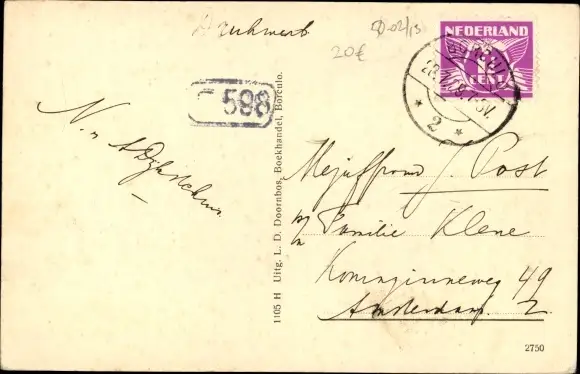 20€
NEDERLAND
1½
CENT
598
2
Mejuffrouw J. Post
p/a Familie Klene
Koninginneweg 49
Amsterdam. Z.
1105 H Uitg. L. D. Doornbos, Boekhandel, Borculo.
2750